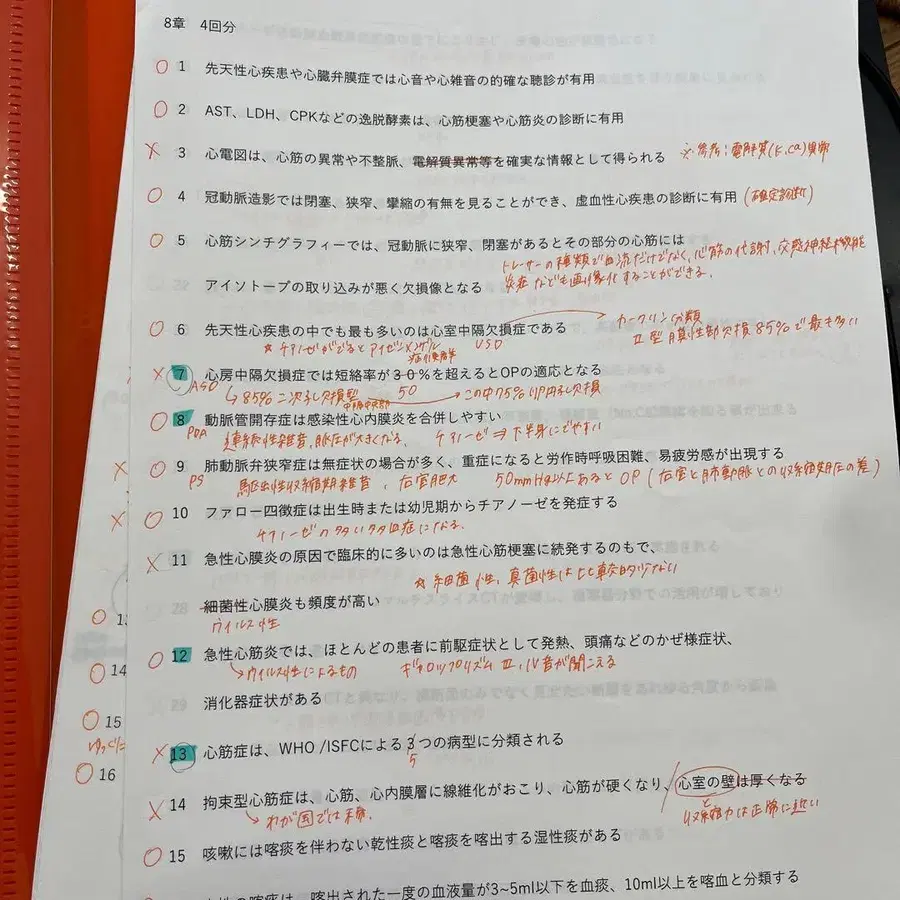 8章 4回分
○ 1 先天性心疾患や心臓弁膜症では心音や心雑音の的確な聴診が有用
○ 2 AST、LDH、CPKなどの逸脱酵素は、心筋梗塞や心筋炎の診断に有用
× 3 心電図は、心筋の異常や不整脈、電解質異常等を確実な情報として得られる
電解質(K,Ca)異常
○ 4 冠動脈造影では閉塞、狭窄、攣縮の有無を見ることができ、虚血性心疾患の診断に有用 (確定診断)
○ 5 心筋シンチグラフィーでは、冠動脈に狭窄、閉塞があるとその部分の心筋には
トレーサーの種類で血流だけでなく、心筋の代謝、交感神経機能
アイソトープの取り込みが悪く欠損像となる
炎症なども画像化することができる。
○ 6 先天性心疾患の中でも最も多いのは心室中隔欠損症である
カークリン分類
VSD
II型 膜性部欠損 85%で最も多い
★チアノーゼがでるとアイゼンメンゲル症候群
× 7 心房中隔欠損症では短絡率が30%を超えるとOPの適応となる
ASD
50
85% 二次孔欠損型
中隔中央部
この中75%が卵円孔欠損
○ 8 動脈管開存症は感染性心内膜炎を合併しやすい
PDA
連続性雑音、脈圧が大きくなる、チアノーゼ⇒下半身にでやすい
○ 9 肺動脈弁狭窄症は無症状の場合が多く、重症になると労作時呼吸困難、易疲労感が出現する
PS
駆出性収縮期雑音、右室肥大 50mmHg以上あるとOP (右室と肺動脈との収縮期圧の差)
○ 10 ファロー四徴症は出生時または幼児期からチアノーゼを発症する
チアノーゼ 多い 多血症になる。
× 11 急性心膜炎の原因で臨床的に多いのは急性心筋梗塞に続発するのもで、
★細菌性、真菌性は比較的少ない
細菌性心膜炎も頻度が高い
ウイルス性
○ 12 急性心筋炎では、ほとんどの患者に前駆症状として発熱、頭痛などのかぜ様症状、
ウイルス性によるもの ギャロップリズム III、IV音が聞こえる
消化器症状がある
× 13 心筋症は、WHO /ISFCによる3つの病型に分類される
5
× 14 拘束型心筋症は、心筋、心内膜層に線維化がおこり、心筋が硬くなり、心室の壁は厚くなる
わが国では稀。
と
収縮力は正常に近い
○ 15 咳嗽には喀痰を伴わない乾性痰と喀痰を喀出する湿性痰がある
の喀痰は、喀出された一度の血液量が3~5ml以下を血痰、10ml以上を喀血と分類する
×
×
○ 13
○ 14
○ 15
○ 16